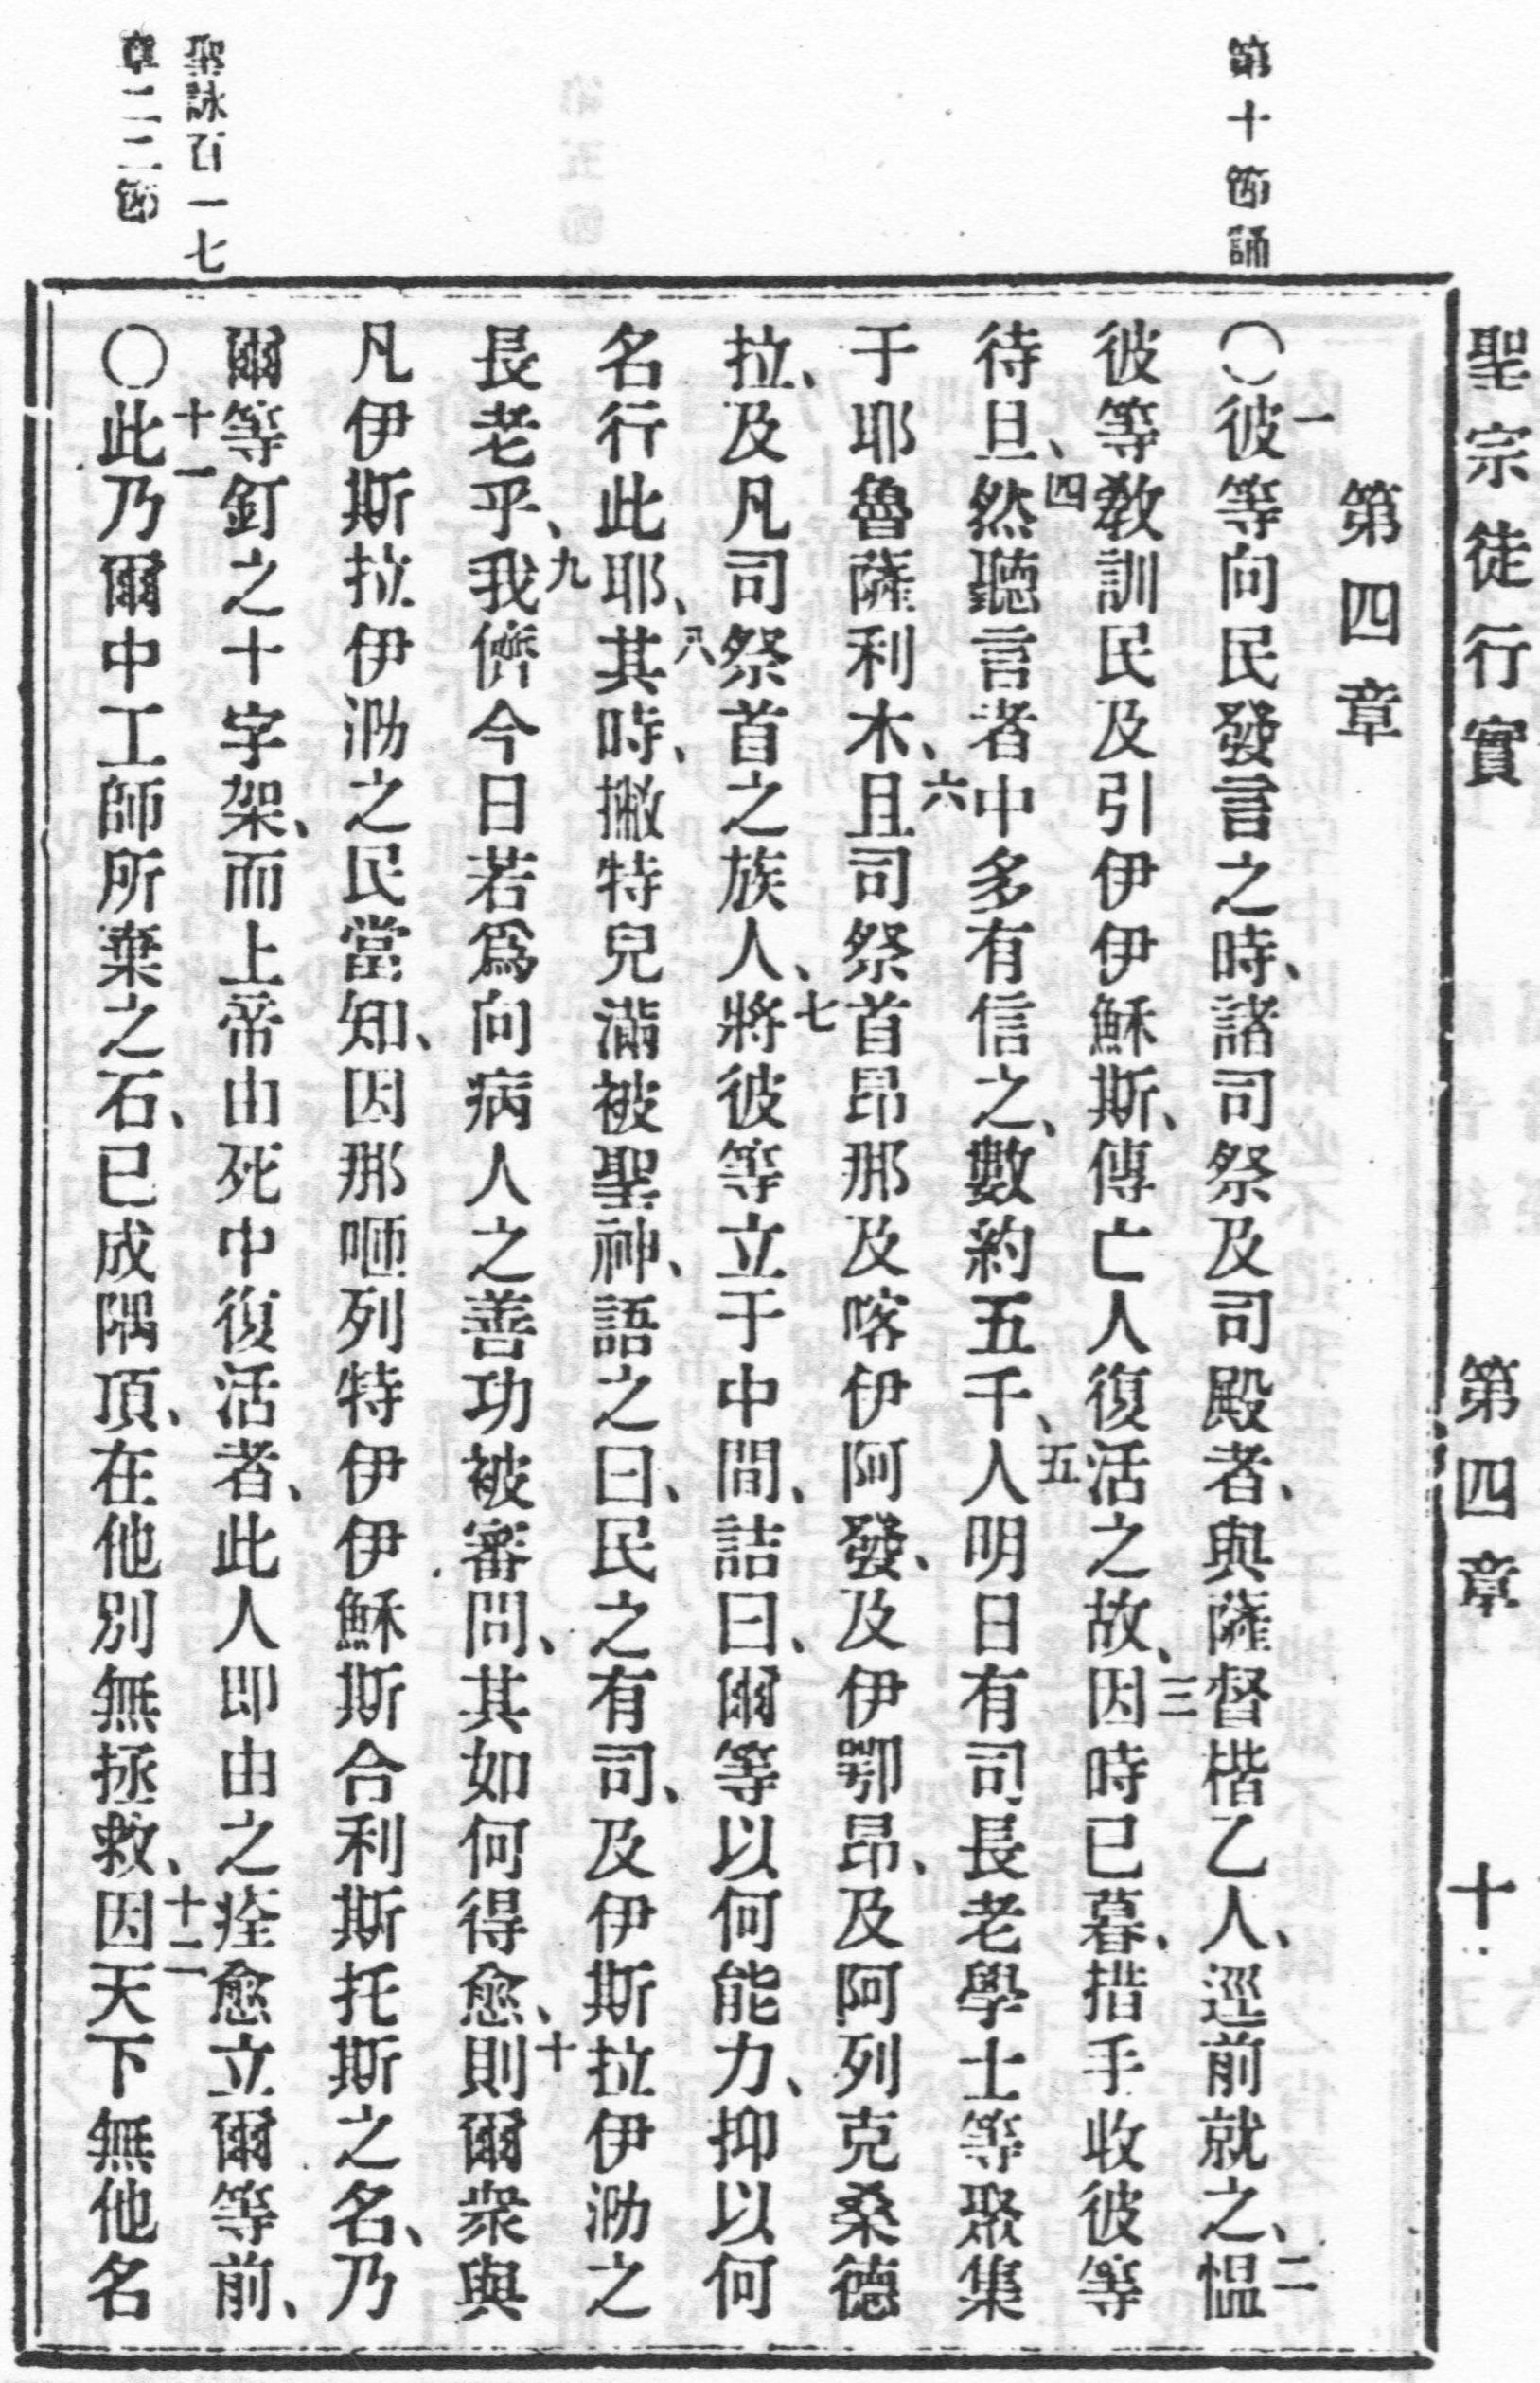 聖宗徒行實 第四章 十
第十節誦
第四章
○一彼等向民發言之時、諸司祭及司殿者、與薩督楷乙人、逕前就之、二愠
彼等教訓民及引伊伊穌斯、傳亡人復活之故、三因時已暮、措手收彼等
待旦、四然聽言者中多有信之、數約五千、五人明日有司長老學士等聚集
于耶魯薩利木、六且司祭首昂那及喀伊阿發、及伊鄂昂、及阿列克桑德
拉、及凡司祭首之族人、七將彼等立于中間、詰曰、爾等以何能力、抑以何
名行此耶、八其時、撇特兒滿被聖神、語之曰、民之有司、及伊斯拉伊泐之
長老乎、九我儕今日若爲向病人之善功被審問、其如何得愈、十則爾衆與
凡伊斯拉伊泐之民當知、因那咂列特伊伊穌斯合利斯托斯之名、乃
爾等釘之十字架、而上帝由死中復活者、此人即由之痊愈立爾等前、
○十一此乃爾中工師所棄之石、已成隅頂、在他別無拯救、十二因天下無他名
聖詠百一七
章二二節